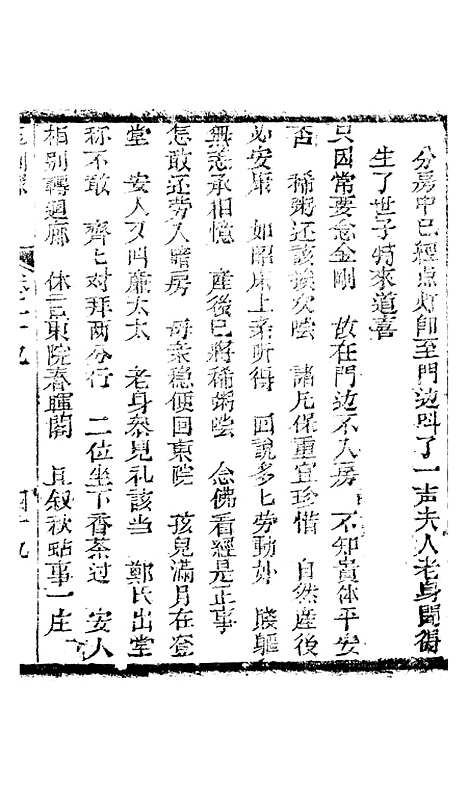 分房中已經点灯師至門边叫了一声夫人老身聞得
生了世子特來道喜
只因常要念金剛　故在門边不入房　不知貴体平安
否　稀粥还該挨次嚐　諸凡保重宜珍惜　自然產後
必安康　如昭床上柔听得　回說多匕劳動妙　賤軀
無恙承相憶　產後已將稀粥嚐　念佛看經是正事
怎敢还劳入暗房　母親穩便回東院　孩兒滿月在登
堂　安人又叫蕭太太　老身叅見礼該当　鄭氏出堂
称不敢　齊匕对拜兩分行　二位坐下香茶过　安人
相别轉迴廊　休言東院春暉閣　且叙秋帖事一庄
四十九